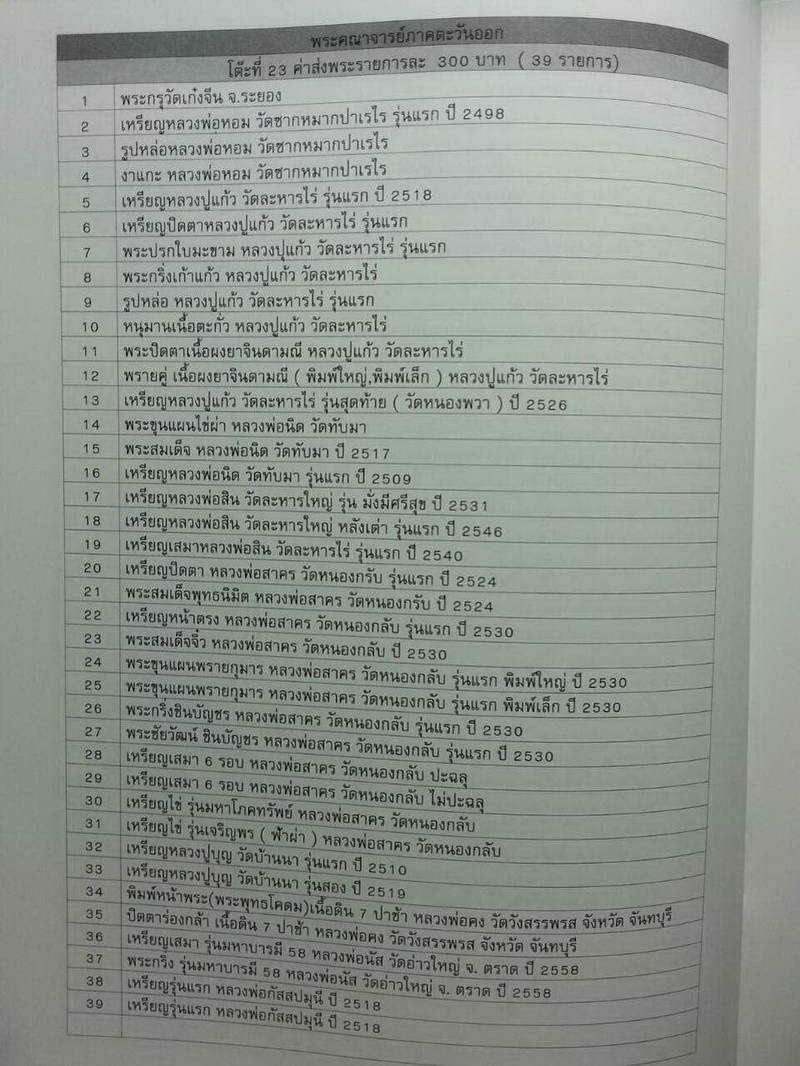 พระคณาจารย์ภาคตะวันออก
โต๊ะที่ 23 ค่าส่งพระรายการละ 300 บาท ( 39 รายการ)
1 พระกรุวัดเก๋งจีน จ.ระยอง
2 เหรียญหลวงพ่อหอม วัดซากหมากปาเรไร รุ่นแรก ปี 2498
3 รูปหล่อหลวงพ่อหอม วัดซากหมากปาเรไร
4 งาแกะ หลวงพ่อหอม วัดซากหมากปาเรไร
5 เหรียญหลวงปู่แก้ว วัดละหารไร่ รุ่นแรก ปี 2518
6 เหรียญปิดตาหลวงปู่แก้ว วัดละหารไร่ รุ่นแรก
7 พระปรกใบมะขาม หลวงปู่แก้ว วัดละหารไร่ รุ่นแรก
8 พระกริ่งเก้าแก้ว หลวงปู่แก้ว วัดละหารไร่
9 รูปหล่อ หลวงปู่แก้ว วัดละหารไร่ รุ่นแรก
10 หนุมานเนื้อตะกั่ว หลวงปู่แก้ว วัดละหารไร่
11 พระปิดตาเนื้อผงยาจินดามณี หลวงปู่แก้ว วัดละหารไร่
12 พรายคู่ เนื้อผงยาจินดามณี ( พิมพ์ใหญ่,พิมพ์เล็ก ) หลวงปู่แก้ว วัดละหารไร่
13 เหรียญหลวงปู่แก้ว วัดละหารไร่ รุ่นสุดท้าย ( วัดหนองพวา ) ปี 2526
14 พระขุนแผนไข่ผ่า หลวงพ่อนิด วัดทับมา
15 พระสมเด็จ หลวงพ่อนิด วัดทับมา ปี 2517
16 เหรียญหลวงพ่อนิด วัดทับมา รุ่นแรก ปี 2509
17 เหรียญหลวงพ่อสิน วัดละหารใหญ่ รุ่น มั่งมีศรีสุข ปี 2531
18 เหรียญหลวงพ่อสิน วัดละหารใหญ่ หลังเต่า รุ่นแรก ปี 2546
19 เหรียญเสมาหลวงพ่อสิน วัดละหารไร่ รุ่นแรก ปี 2540
20 เหรียญปิดตา หลวงพ่อสาคร วัดหนองกรับ รุ่นแรก ปี 2524
21 พระสมเด็จพุทธนิมิต หลวงพ่อสาคร วัดหนองกรับ ปี 2524
22 เหรียญหน้าตรง หลวงพ่อสาคร วัดหนองกลับ รุ่นแรก ปี 2530
23 พระสมเด็จจิ๋ว หลวงพ่อสาคร วัดหนองกลับ ปี 2530
24 พระขุนแผนพรายกุมาร หลวงพ่อสาคร วัดหนองกลับ รุ่นแรก พิมพ์ใหญ่ ปี 2530
25 พระขุนแผนพรายกุมาร หลวงพ่อสาคร วัดหนองกลับ รุ่นแรก พิมพ์เล็ก ปี 2530
26 พระกริ่งชินบัญชร หลวงพ่อสาคร วัดหนองกลับ รุ่นแรก ปี 2530
27 พระชัยวัฒน์ ชินบัญชร หลวงพ่อสาคร วัดหนองกลับ รุ่นแรก ปี 2530
28 เหรียญเสมา 6 รอบ หลวงพ่อสาคร วัดหนองกลับ ปะฉลุ
29 เหรียญเสมา 6 รอบ หลวงพ่อสาคร วัดหนองกลับ ไม่ปะฉลุ
30 เหรียญไข่ รุ่นมหาโภคทรัพย์ หลวงพ่อสาคร วัดหนองกลับ
31 เหรียญไข่ รุ่นเจริญพร ( ฟ้าผ่า ) หลวงพ่อสาคร วัดหนองกลับ
32 เหรียญหลวงปู่บุญ วัดบ้านนา รุ่นแรก ปี 2510
33 เหรียญหลวงปู่บุญ วัดบ้านนา รุ่นสอง ปี 2519
34 พิมพ์หน้าพระ(พระพุทธโคดม)เนื้อดิน 7 ป่าช้า หลวงพ่อคง วัดวังสรรพรส จังหวัด จันทบุรี
35 ปิดตาร่องกล้า เนื้อดิน 7 ป่าช้า หลวงพ่อคง วัดวังสรรพรส จังหวัด จันทบุรี
36 เหรียญเสมา รุ่นมหาบารมี 58 หลวงพ่อนัส วัดอ่าวใหญ่ จ. ตราด ปี 2558
37 พระกริ่ง รุ่นมหาบารมี 58 หลวงพ่อนัส วัดอ่าวใหญ่ จ. ตราด ปี 2558
38 เหรียญรุ่นแรก หลวงพ่อกัสสปมุนี ปี 2518
39 เหรียญรุ่นแรก หลวงพ่อกัสสปมุนี ปี 2518